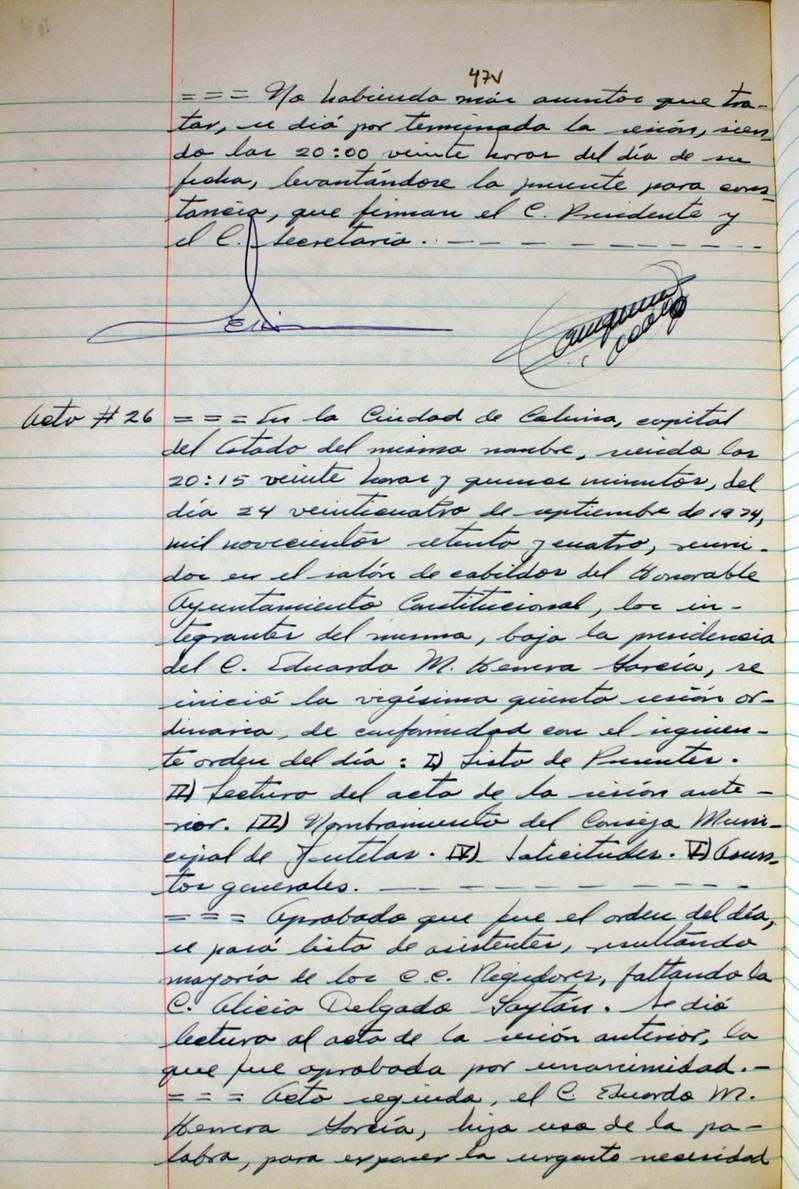 47v
=== No habiendo más asuntos que tra-
tar, se dió por terminada la sesión, sien-
do las 20:00 veinte horas del día de su
fecha, levantándose la presente para cons-
tancia, que firman el C. Presidente y
el C. Secretario. - - - - - - - - - -
Acta # 26 === En la Ciudad de Colima, capital
del Estado del mismo nombre, siendo las
20:15 veinte horas y quince minutos, del
día 24 veinticuatro de septiembre de 1974,
mil novecientos setenta y cuatro, reuni-
dos en el salón de cabildos del Honorable
Ayuntamiento Constitucional, los in-
tegrantes del mismo, bajo la presidencia
del C. Eduardo M. Herrera García, se
inició la vigésima quinta sesión or-
dinaria, de conformidad con el siguien-
te orden del día: I) Lista de Presentes.
II) Lectura del acta de la sesión ante-
rior. III) Nombramiento del Consejo Muni-
cipal de Tutelas. IV) Solicitudes. V) Asun-
tos generales. - - - - - - - - - -
=== Aprobado que fue el orden del día,
se pasó lista de asistentes, resultando
mayoría de los C.C. Regidores, faltando la
C. Alicia Delgado Saytán. Se dió
lectura al acta de la sesión anterior, la
que fue aprobada por unanimidad. -
=== Acto seguido, el C. Eduardo M.
Herrera García, hizo uso de la pa-
labra, para exponer la urgente necesidad